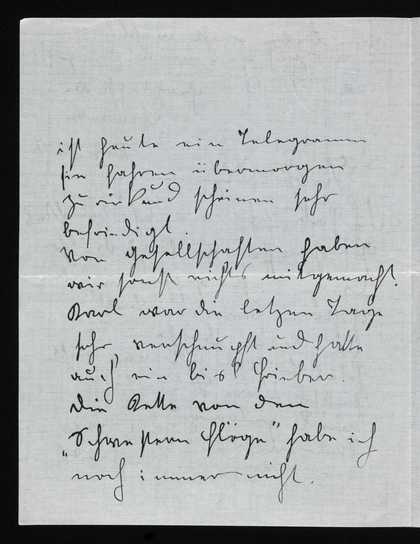 ist heute ein Telegramm
sie fahren übermorgen
zurück und scheinen sehr
befriedigt.
Von Gesellschaften haben
wir sonst nichts mitgemacht.
Karl war die letzen Tage
sehr verschnupft und hatte
auch ein bis'l Fieber.
Die Kette von den
„Schwestern Flöge" habe ich
noch immer nicht.